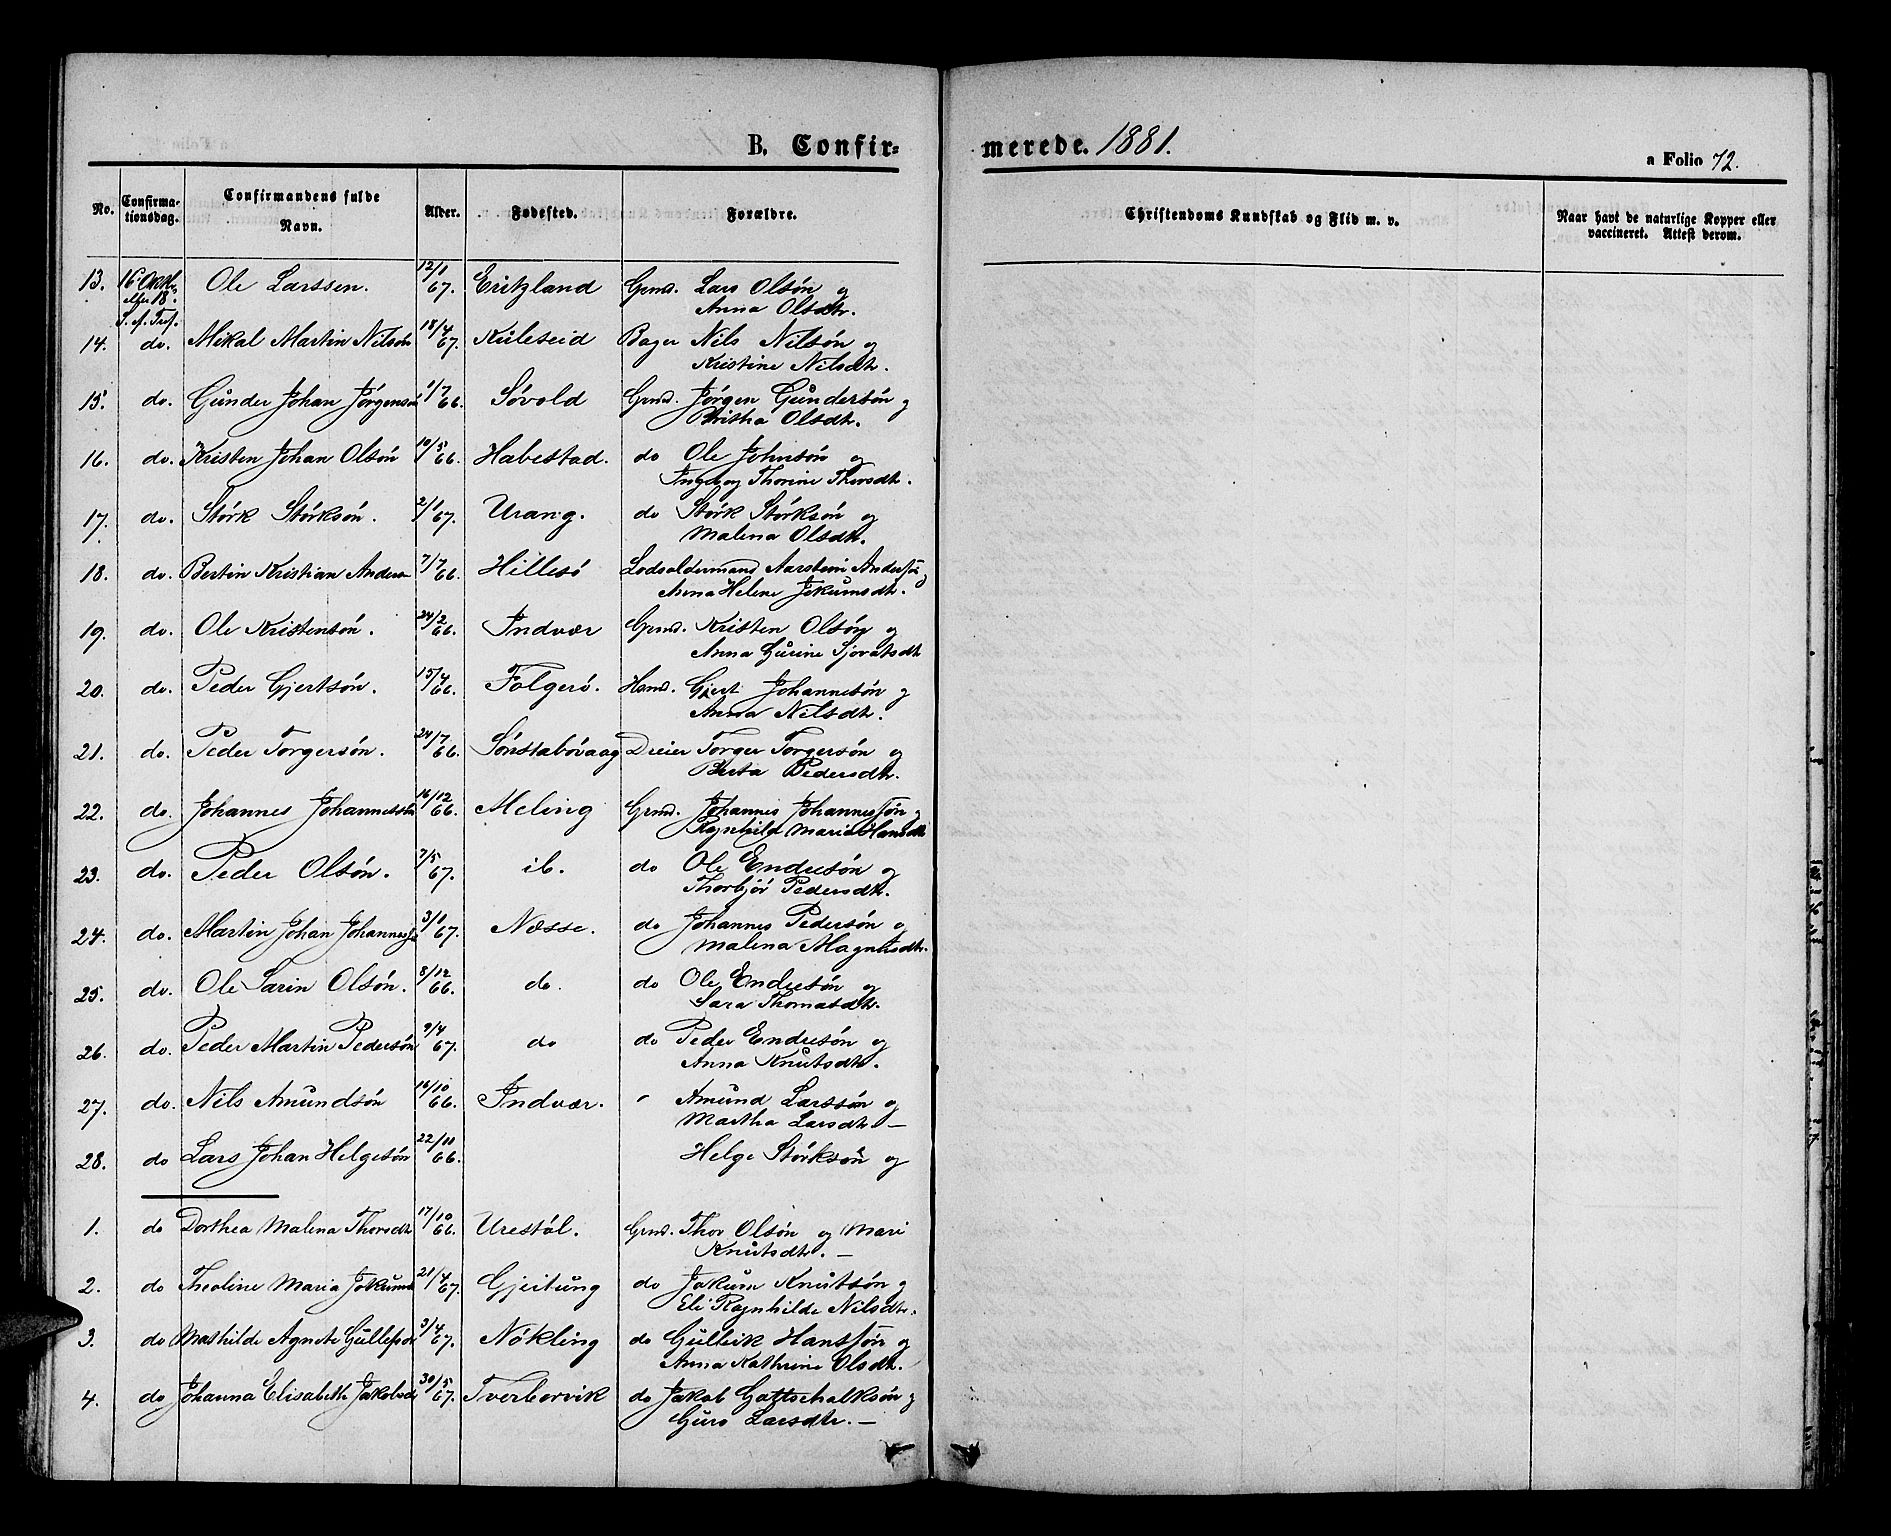 B. Confir=
merede. 1881.
a Folio 72.
No.
Confirma-
tionsdag.
Confirmandens fulde
Navn.
Alder.
Fødested.
Forældre.
Christendoms Kundskab og Flid m. v.
Naar havt de naturlige Kopper eller
vaccineret. Attest derom.
13. 16 Oktbr Ole Larssen. 12/1 67. Eritzland Grmd. Lars Olsøn og
efter 18. Anna Olsdtr.
S. ef. Tref.
14. do. Mikal Martin Nilsøn 18/4 67. Kuleseid Bager Nils Nilsøn og
Kristine Nilsdtr.
15. do. Gunder Johan Jørgensøn 1/7 66. Søvold Grmd. Jørgen Gundersøn og
Britha Olsdtr.
16. do. Kristen Johan Olsøn 10/5 66. Habestad. do Ole Johnsøn og
Ingeborg Thorine Thorsdtr.
17. do. Størk Størksøn. 2/1 67. Urang. do Størk Størksøn og
Malena Olsdtr.
18. do. Bertin Kristian Anders 7/7 66. Hillesø Lodsoldermand Aarstein Andersøn
Anna Helene Jokumsdtr.
19. do. Ole Kristensøn. 24/2 66. Indvær Grmd. Kristen Olsøn og
Anna Gurine Sjovatsdtr
20. do. Peder Gjertsøn. 15/4 66. Folgerø. Hmd. Gjert Johannesøn og
Anna Nilsdtr.
21. do. Peder Torgersøn. 24/7 66. Sønstabøvaag Dreier Torger Torgersøn og
Berta Pedersdtr.
22. do. Johannes Johannessøn 16/12 66. Meling Grmd. Johannes Johannessøn og
Ragnhild Maria Hansdtr
23. do. Peder Olsøn. 7/5 67. ib. do Ole Endresøn og
Thorbjør Pedersdtr.
24. do. Martin Johan Johannessø 3/1 67. Næsse. do Johannes Pedersøn og
Malena Magnusdtr.
25. do. Ole Sarin Olsøn. 8/12 66. do. do Ole Endresøn og
Sara Thomasdtr.
26. do. Peder Martin Pedersøn 9/4 67. do do Peder Endresøn og
Anna Knutsdtr.
27. do. Nils Amundsøn 16/10 66. Indvær. " Amund Larssøn og
Martha Larsdtr. —
28. do Lars Johan Helgesøn 22/11 66. Helge Størksøn og
1. do Dorthea Malena Thorsdtr 17/10 66. Urestøl. Grmd. Thor Olsøn og Mari
Knutsdtr. —
2. do Theoline Maria Jokumsd 21/4 67. Gjeitung do Jokum Knutsøn og
Eli Ragnhilde Nilsdtr.
3. do Mathilde Agnete Gulleksd 3/4 67. Nøkling do Gulleik Hanssøn og
Anna Kathrine Olsdtr.
4. do Johanna Elisabeth Jakobsd 30/5 67. Tverborvik do Jakob Gottschalksøn og
Guro Larsdtr. —